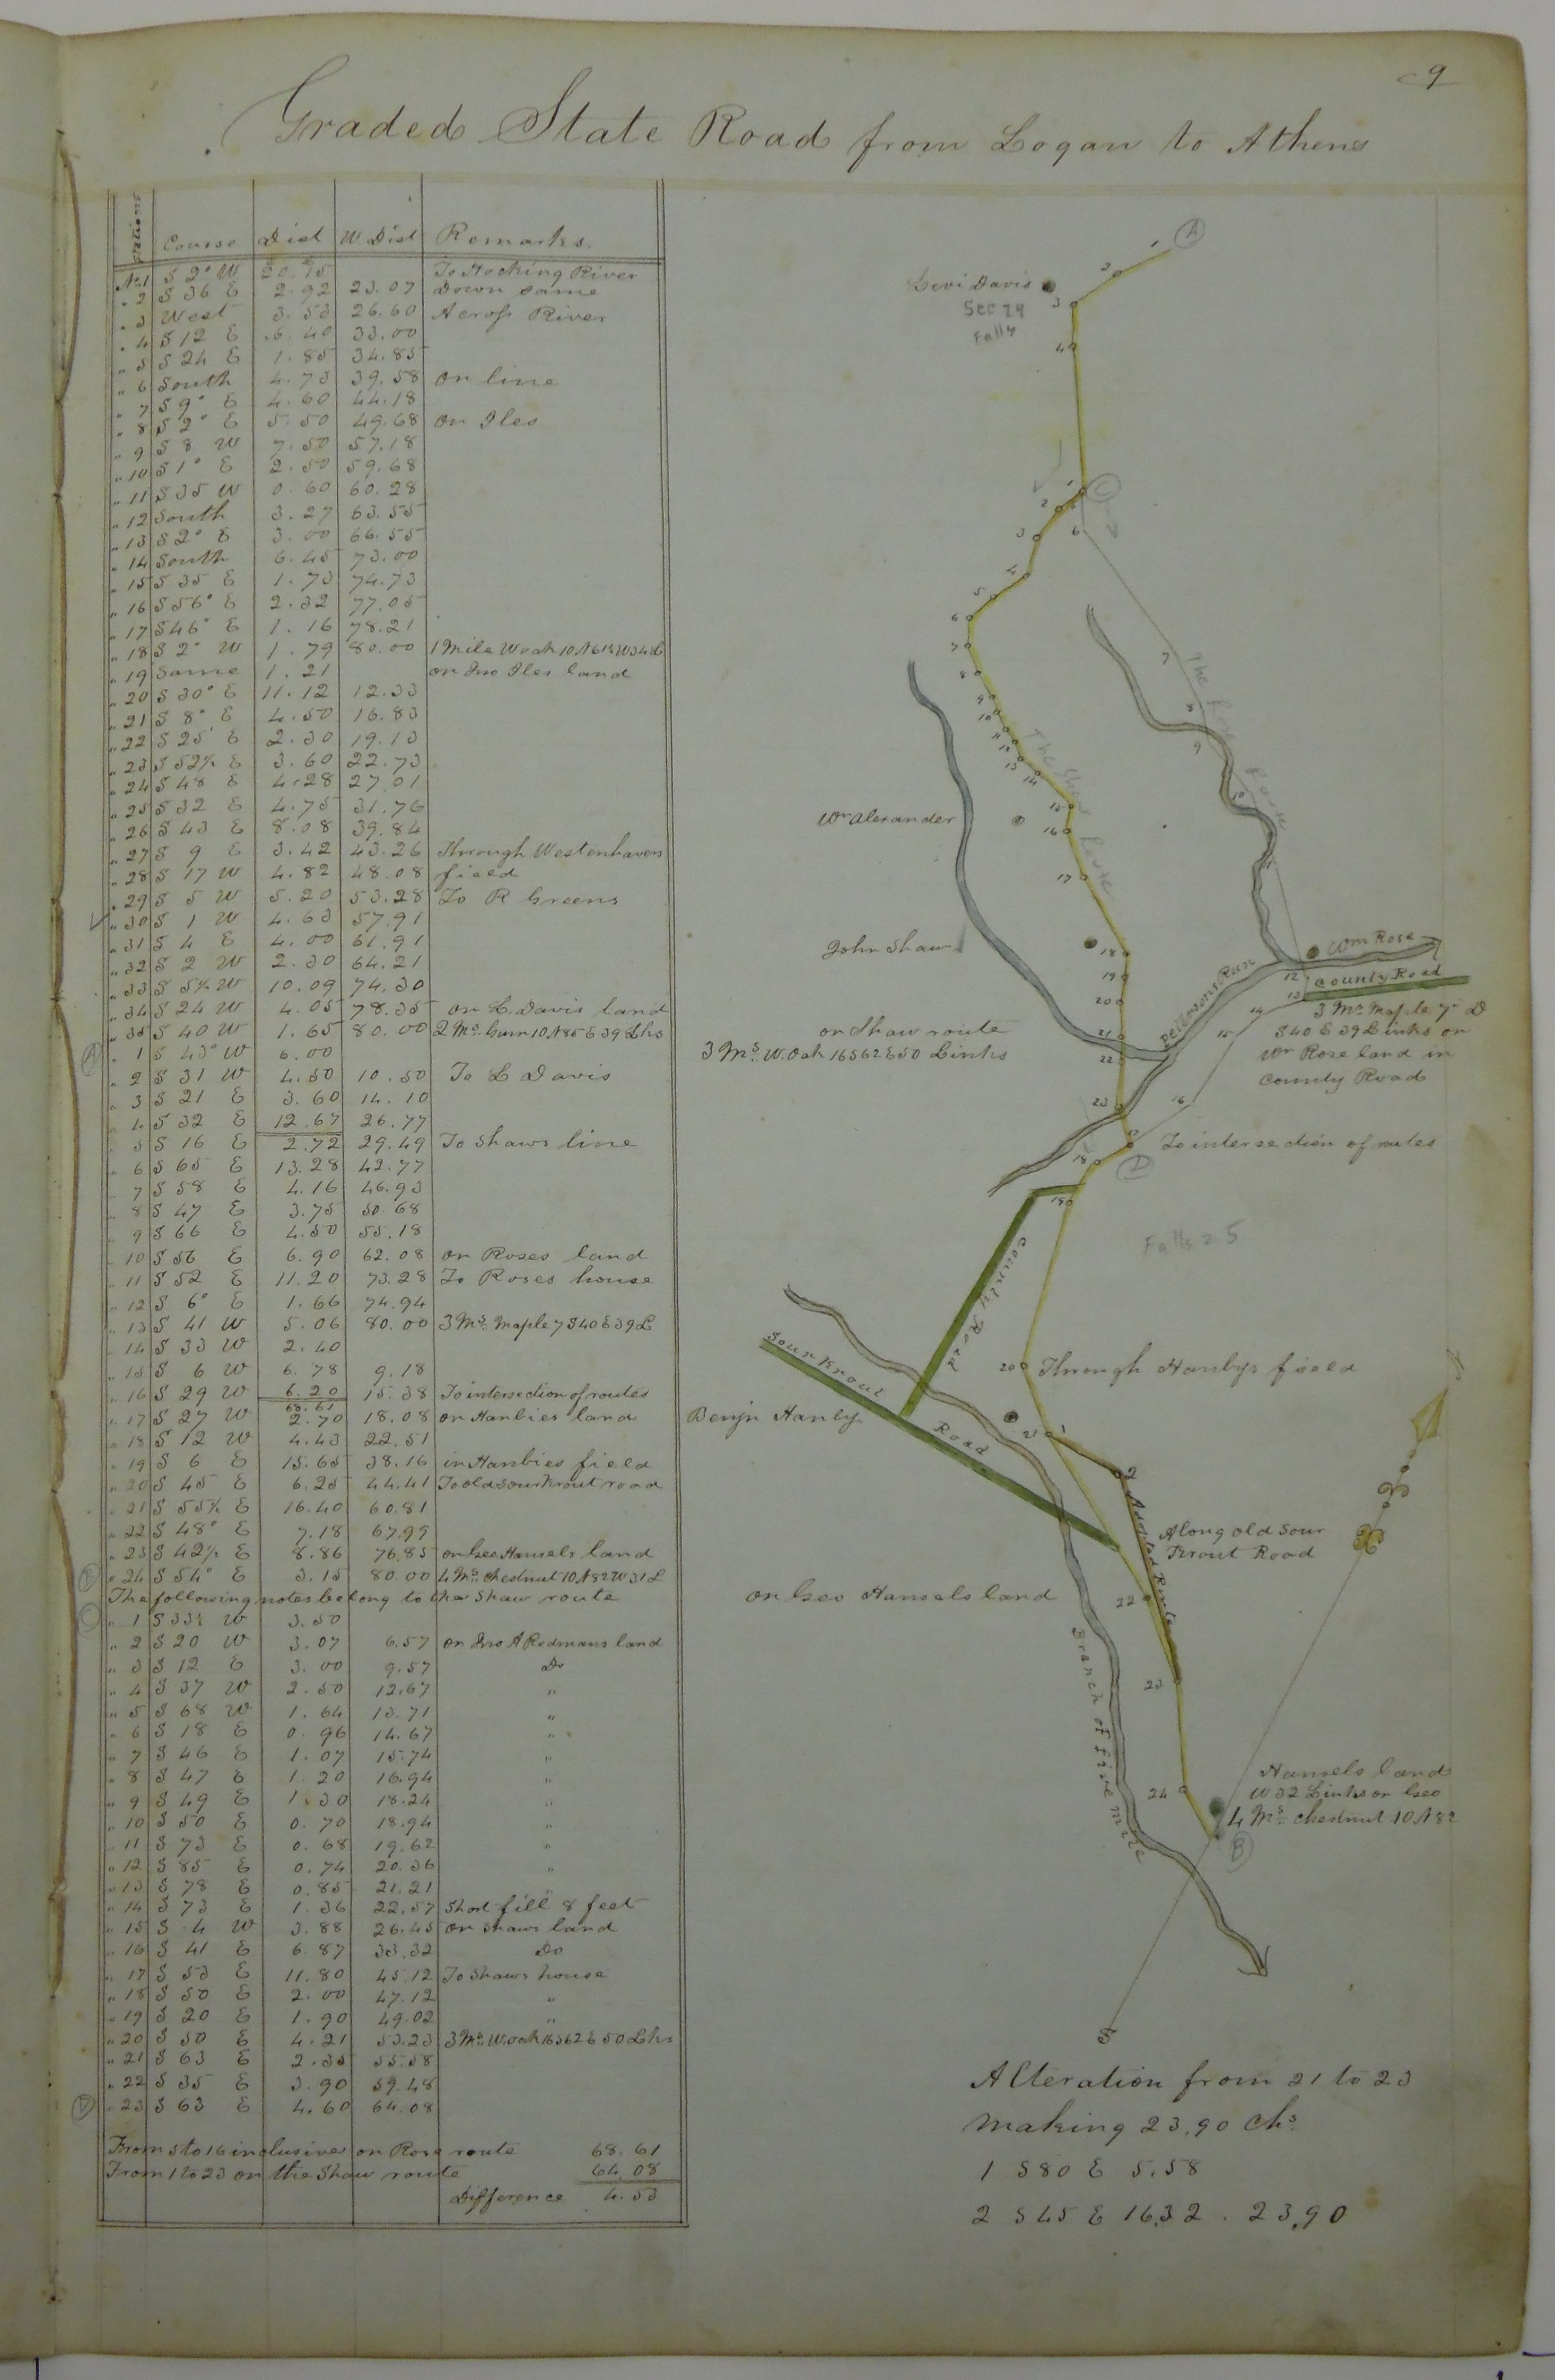 9
Graded State Road from Logan to Athens
Stations Course Dist W. Dist Remarks.
No 1 S 2° W 20.15 To Hocking River
" 2 S 36 E 2.92 23.07 Down same
" 3 West 3.53 26.60 Across River
" 4 S 12 E 6.40 33.00
" 5 S 24 E 1.85 34.85
" 6 South 4.73 39.58 on line
" 7 S 9° E 4.60 44.18
" 8 S 2° E 5.50 49.68 on Iles
" 9 S 8 W 7.50 57.18
" 10 S 1° E 2.50 59.68
" 11 S 35 W 0.60 60.28
" 12 South 3.27 63.55
" 13 S 2° E 3.00 66.55
" 14 South 6.45 73.00
" 15 S 35 E 1.73 74.73
" 16 S 56° E 2.32 77.05
" 17 S 46° E 1.16 78.21
" 18 S 2° W 1.79 80.00 1 Mile W oak 10 N 61½ W 34 L
" 19 Same 1.21 on Jno Iles land
" 20 S 30° E 11.12 12.33
" 21 S 8° E 4.50 16.83
" 22 S 25 E 2.30 19.13
" 23 S 52½ E 3.60 22.73
" 24 S 48 E 4.28 27.01
" 25 S 32 E 4.75 31.76
" 26 S 43 E 8.08 39.84
" 27 S 9 E 3.42 43.26 Through Westenhavers
" 28 S 17 W 4.82 48.08 field
" 29 S 5 W 5.20 53.28 To R Greens
" 30 S 1 W 4.63 57.91
" 31 S 4 E 4.00 61.91
" 32 S 2 W 2.30 64.21
" 33 S 5½ W 10.09 74.30
" 34 S 24 W 4.05 78.35 on L. Davis land
" 35 S 40 W 1.65 80.00 2 Ms. Gum 10 N 85 E 39 Lks
A " 1 S 43° W 6.00
" 2 S 31 W 4.50 10.50 To L Davis
" 3 S 21 E 3.60 14.10
" 4 S 32 E 12.67 26.77
5 S 16 E 2.72 29.49 To Shaws line
" 6 S 65 E 13.28 42.77
" 7 S 58 E 4.16 46.93
" 8 S 47 E 3.75 50.68
" 9 S 66 E 4.50 55.18
" 10 S 56 E 6.90 62.08 on Roses land
" 11 S 52 E 11.20 73.28 To Roses house
" 12 S 6° E 1.66 74.94
" 13 S 41 W 5.06 80.00 3 Ms. Maple 7 S 40 E 39 L
" 14 S 33 W 2.40
" 15 S 6 W 6.78 9.18
" 16 S 29 W 6.20 15.38 To intersection of routes
68.61
" 17 S 27 W 2.70 18.08 on Hanbies land
" 18 S 12 W 4.43 22.51
" 19 S 6 E 15.65 38.16 in Hanbies field
" 20 S 45 E 6.25 44.41 To old Sourkrout road
" 21 S 55½ E 16.40 60.81
" 22 S 48° E 7.18 67.99
" 23 S 42½ E 8.86 76.85 on Geo Hansels land
B " 24 S 54° E 3.15 80.00 4 Ms. chestnut 10 N 82 W 31 L
The following notes belong to the Shaw route
C " 1 S 33½ W 3.50
" 2 S 20 W 3.07 6.57 on Jno A Redmans land
" 3 S 12 E 3.00 9.57 Do
" 4 S 37 W 2.50 12.67 "
" 5 S 68 W 1.64 13.71 "
" 6 S 18 E 0.96 14.67 "
" 7 S 46 E 1.07 15.74 "
" 8 S 47 E 1.20 16.94 "
" 9 S 49 E 1.30 18.24 "
" 10 S 50 E 0.70 18.94 "
" 11 S 73 E 0.68 19.62 "
" 12 S 85 E 0.74 20.36 "
" 13 S 78 E 0.85 21.21 "
" 14 S 73 E 1.36 22.57 Short fill 8 feet
" 15 S 4 W 3.88 26.45 on Shaws land
" 16 S 41 E 6.87 33.32 Do
" 17 S 53 E 11.80 45.12 To Shaws house
" 18 S 50 E 2.00 47.12 "
" 19 S 20 E 1.90 49.02 "
" 20 S 50 E 4.21 53.23 3 Ms. W. oak 16 S 62 E 50 Lks
" 21 S 63 E 2.35 55.58
" 22 S 35 E 3.90 59.48
D " 23 S 63 E 4.60 64.08
From 5 to 16 inclusive on Rose route 68.61
From 1 to 23 on the Shaw route 64.08
Difference 4.53
A
1
2
Levi Davis
3
Sec 24
Falls
4
1
C
2
3
6
4
5
6
7
8
9
10
11
12
13
14
15
16
17
The Shaw Route
7
8
9
10
The Rose Route
Wm Alexander
John Shaw
18
19
20
21
22
23
Petersons Run
Wm Rose
County Road
12
13
14
15
16
3 Ms. Maple 7 D
S 40 E 39 Links on
Wm Rose land in
County Road
on Shaw route
3 Ms. W. Oak 16 S 62 E 50 Links
To intersection of routes
D
18
19
County Road
Falls 25
Sour Krout Road
20
Through Hanbys field
Benjn Hanby
21
1
2
Adopted Route
Along old Sour
Krout Road
on Geo Hansels land
22
23
24
Branch of five mile
Hansels land
W 32 Links on Geo
4 Ms. chestnut 10 N 82
B
S
Alteration from 21 to 23
making 23.90 chs.
1 S 80 E 5.58
2 S 45 E 16.32 . 23.90